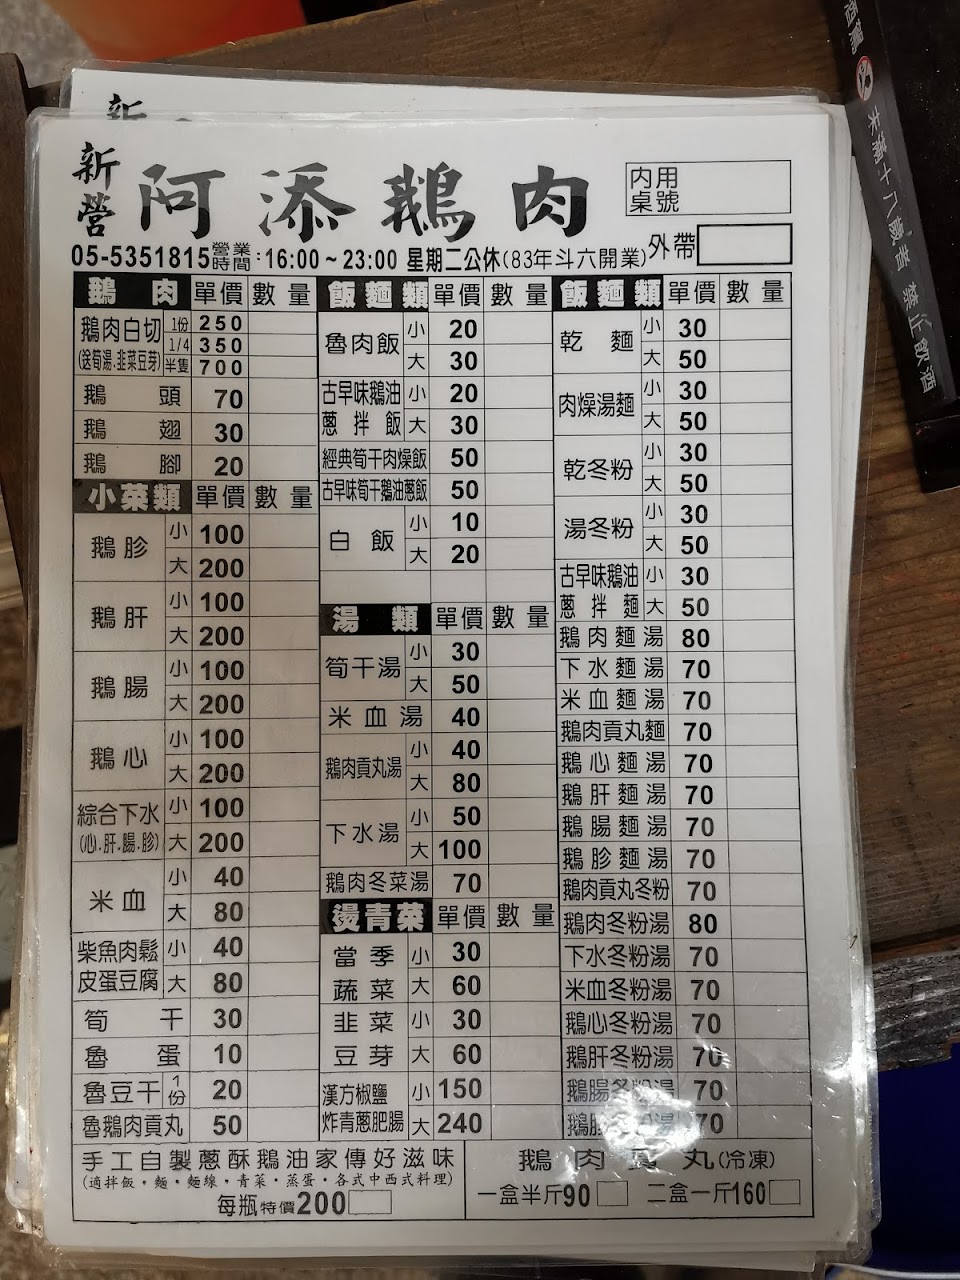 新
新營 阿添鵝肉
內用桌號
05-5351815 營業時間:16:00~23:00 星期二公休(83年斗六開業) 外帶
鵝肉 單價 數量
鵝肉白切(送筍湯.韭菜豆芽) 1份 250
1/4 350
半隻 700
鵝頭 70
鵝翅 30
鵝腳 20
小菜類 單價 數量
鵝胗 小 100
大 200
鵝肝 小 100
大 200
鵝腸 小 100
大 200
鵝心 小 100
大 200
綜合下水 小 100
(心.肝.腸.胗) 大 200
米血 小 40
大 80
柴魚肉鬆 小 40
皮蛋豆腐 大 80
筍干 30
魯蛋 10
魯豆干 1份 20
魯鵝肉貢丸 50
飯麵類 單價 數量
魯肉飯 小 20
大 30
古早味鵝油 小 20
蔥拌飯 大 30
經典筍干肉燥飯 50
古早味筍干鵝油蔥飯 50
白飯 小 10
大 20
湯類 單價 數量
筍干湯 小 30
大 50
米血湯 40
鵝肉貢丸湯 小 40
大 80
下水湯 小 50
大 100
鵝肉冬菜湯 70
燙青菜 單價 數量
當季 小 30
蔬菜 大 60
韭菜 小 30
豆芽 大 60
漢方椒鹽 小 150
炸青蔥肥腸 大 240
飯麵類 單價 數量
乾麵 小 30
大 50
肉燥湯麵 小 30
大 50
乾冬粉 小 30
大 50
湯冬粉 小 30
大 50
古早味鵝油 小 30
蔥拌麵 大 50
鵝肉麵湯 80
下水麵湯 70
米血麵湯 70
鵝肉貢丸麵 70
鵝心麵湯 70
鵝肝麵湯 70
鵝腸麵湯 70
鵝胗麵湯 70
鵝肉貢丸冬粉 70
鵝肉冬粉湯 80
下水冬粉湯 70
米血冬粉湯 70
鵝心冬粉湯 70
鵝肝冬粉湯 70
鵝腸冬粉湯 70
鵝 粉湯 70
手工自製蔥酥鵝油家傳好滋味
(適拌飯・麵・麵線・青菜・蒸蛋・各式中西式料理)
每瓶特價200
鵝肉貢丸(冷凍)
一盒半斤90 二盒一斤160
未滿十八歲者 禁止飲酒